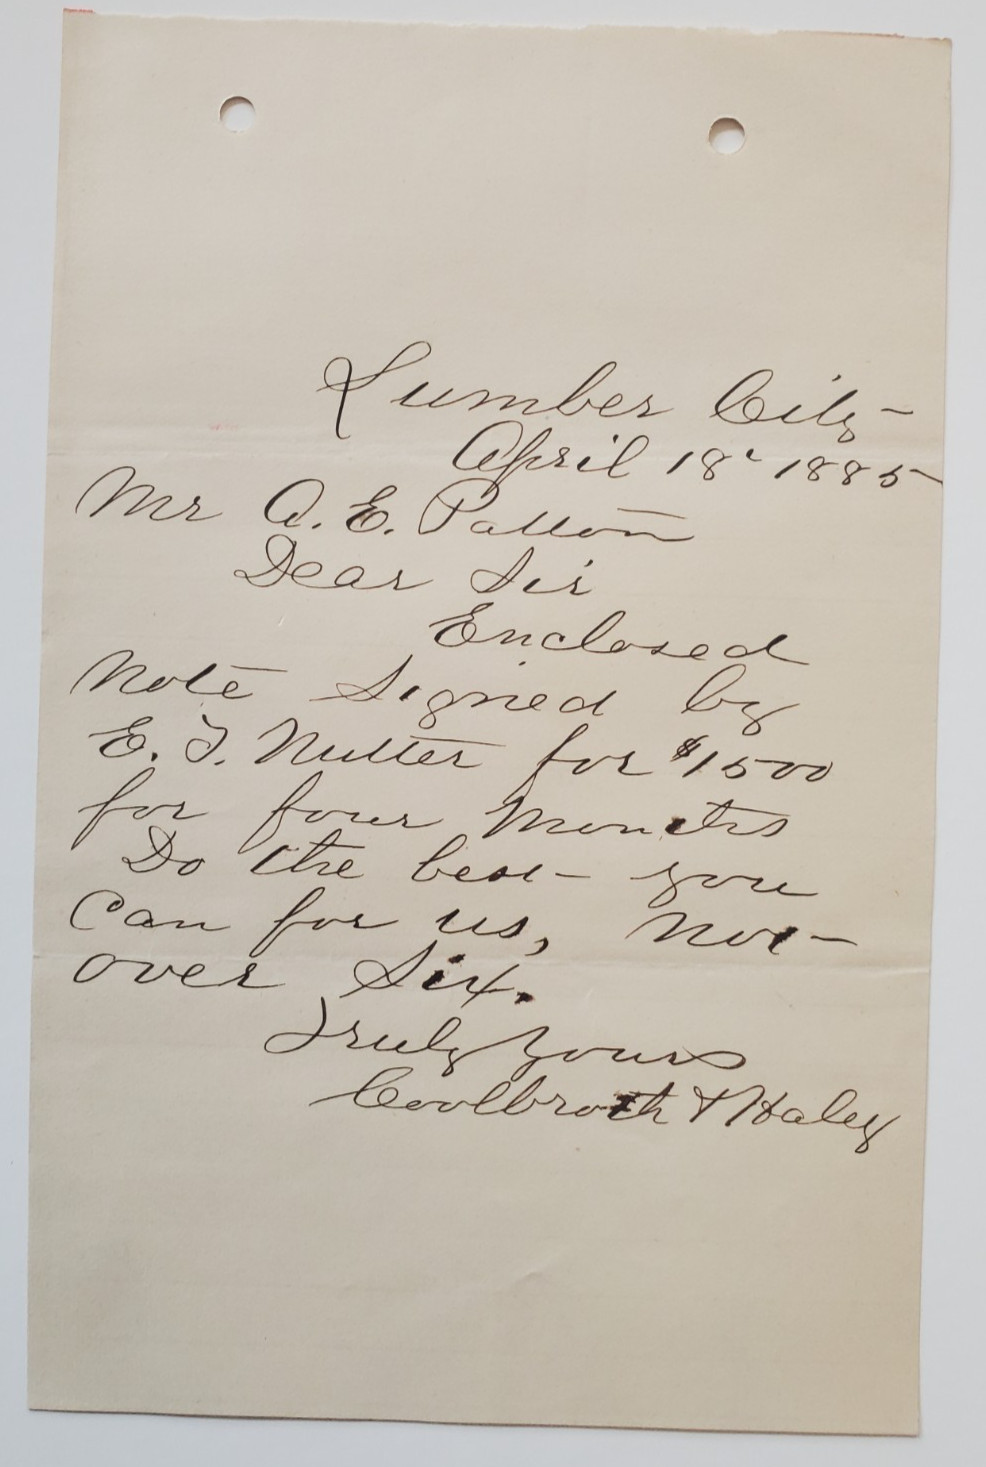 Lumber City
April 18 1885
Mr A. E. Patton
Dear Sir
Enclosed
Note Signed by
E. T. Nutter for $1500
for four Months
Do the best you
Can for us, Not
over Six.
Truly Yours
Coolbroth & Haley